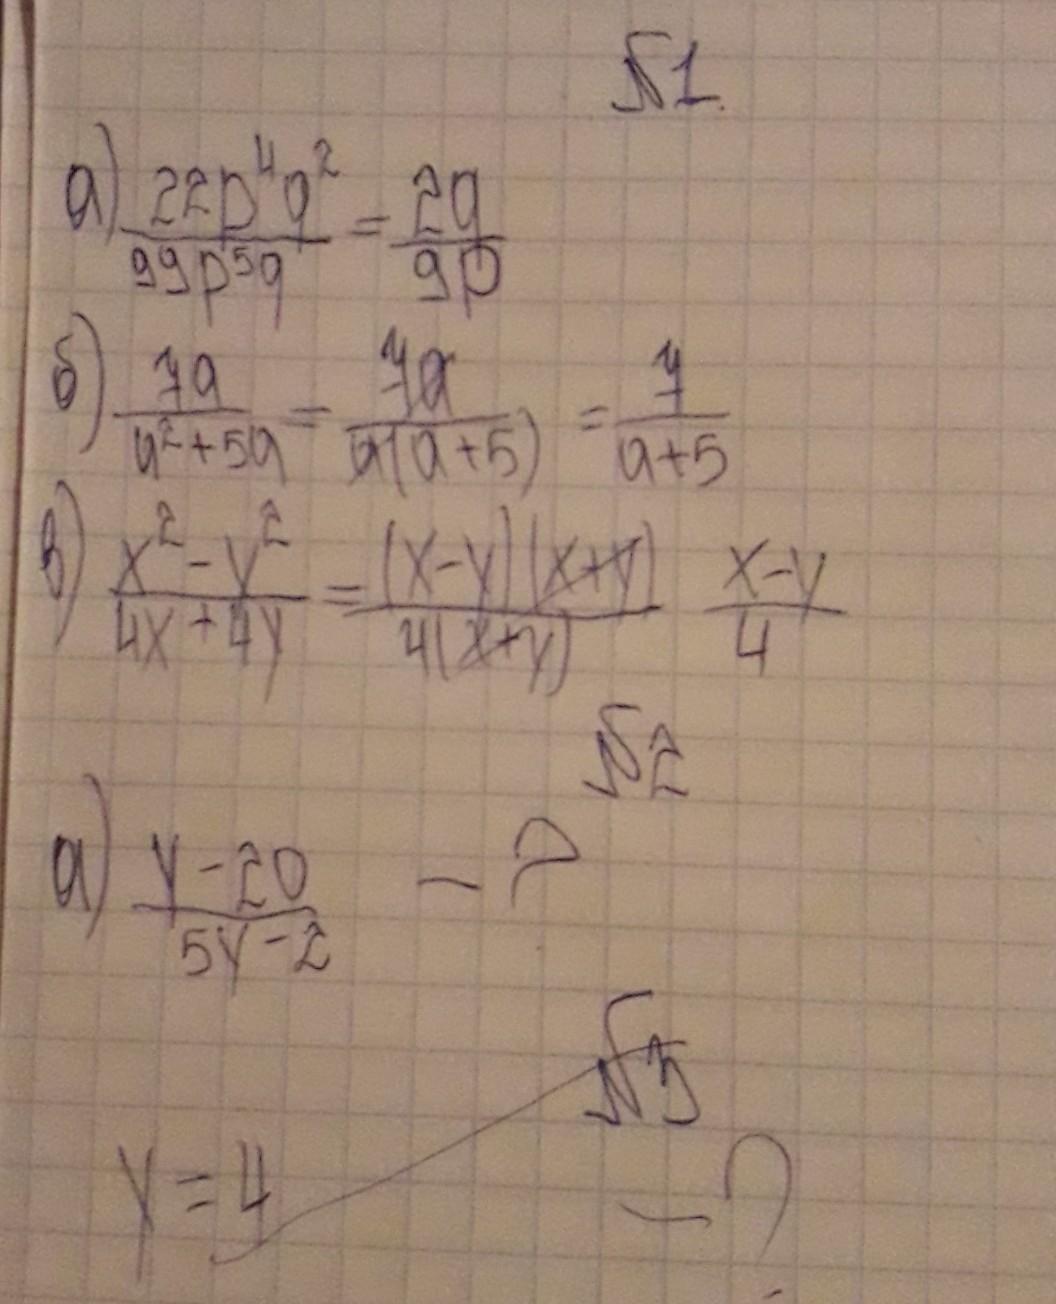 №1
а) 22p⁴q²/99p⁵q = 2q/9p
б) 7a/a²+5a = 7a/a(a+5) = 7/a+5
в) x²-y²/4x+4y = (x-y)(x+y)/4(x+y) x-y/4
№2
а) y-20/5y-2 - ?
№3
y=4 - ?